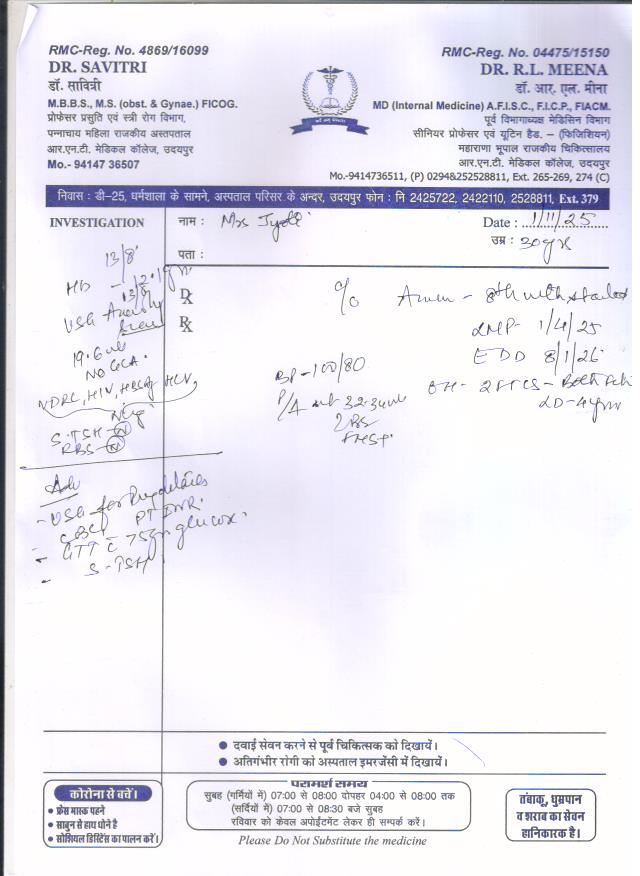 RMC-Reg. No. 4869/16099
DR. SAVITRI
डॉ. सावित्री
M.B.B.S., M.S. (obst. & Gynae.) FICOG.
प्रोफेसर प्रसुति एवं स्त्री रोग विभाग,
पन्नाधाय महिला राजकीय अस्तपताल
आर.एन.टी. मेडिकल कॉलेज, उदयपुर
Mo.- 94147 36507
RMC-Reg. No. 04475/15150
DR. R.L. MEENA
डॉ. आर. एल. मीना
MD (Internal Medicine) A.F.I.S.C., F.I.C.P., FIACM.
पूर्व विभागाध्यक्ष मेडिसिन विभाग
सीनियर प्रोफेसर एवं यूटिन हैड. – (फिजिशियन)
महाराणा भूपाल राजकीय चिकित्सालय
आर.एन.टी. मेडिकल कॉलेज, उदयपुर
Mo.-9414736511, (P) 0294&252528811, Ext. 265-269, 274 (C)
निवास : डी-25, धर्मशाला के सामने, अस्पताल परिसर के अन्दर, उदयपुर फोन : नि 2425722, 2422110, 2528811, Ext. 379
INVESTIGATION
नाम : Mrs Jyoti
Date : 1/11/25
उम्र : 30yrs
पता :
13/8
Hb - 12.1gm
13/8
USG
19.6 wk
NO GCA.
VDRL, HIV, HBsAg HCV,
Neg
S.TSH - N
RBS - N
Dx
Rx
c/o Amen - 8th with started
LMP - 1/4/25
EDD 8/1/26
BP - 100/80
OH - 2FTCS - Both
LD - 4yrs
P/A ut 32-34wk
FHS+
Adv
- USG for
- CBC, PT INR.
- GTT c 75gm glucose.
- S-TSH
● दवाई सेवन करने से पूर्व चिकित्सक को दिखायें।
● अतिगंभीर रोगी को अस्पताल इमरजेंसी में दिखायें।
कोरोना से बचें।
● फ्रेस मास्क पहने
● साबुन से हाथ धोने है
● सोशियल डिस्टेंस का पालन करें।
परामर्श समय
सुबह (गर्मियों में) 07:00 से 08:00 दोपहर 04:00 से 08:00 तक
(सर्दियों में) 07:00 से 08:30 बजे सुबह
रविवार को केवल अपोईंटमेंट लेकर ही सम्पर्क करें।
Please Do Not Substitute the medicine
तंबाकू, धुम्रपान
व शराब का सेवन
हानिकारक है।